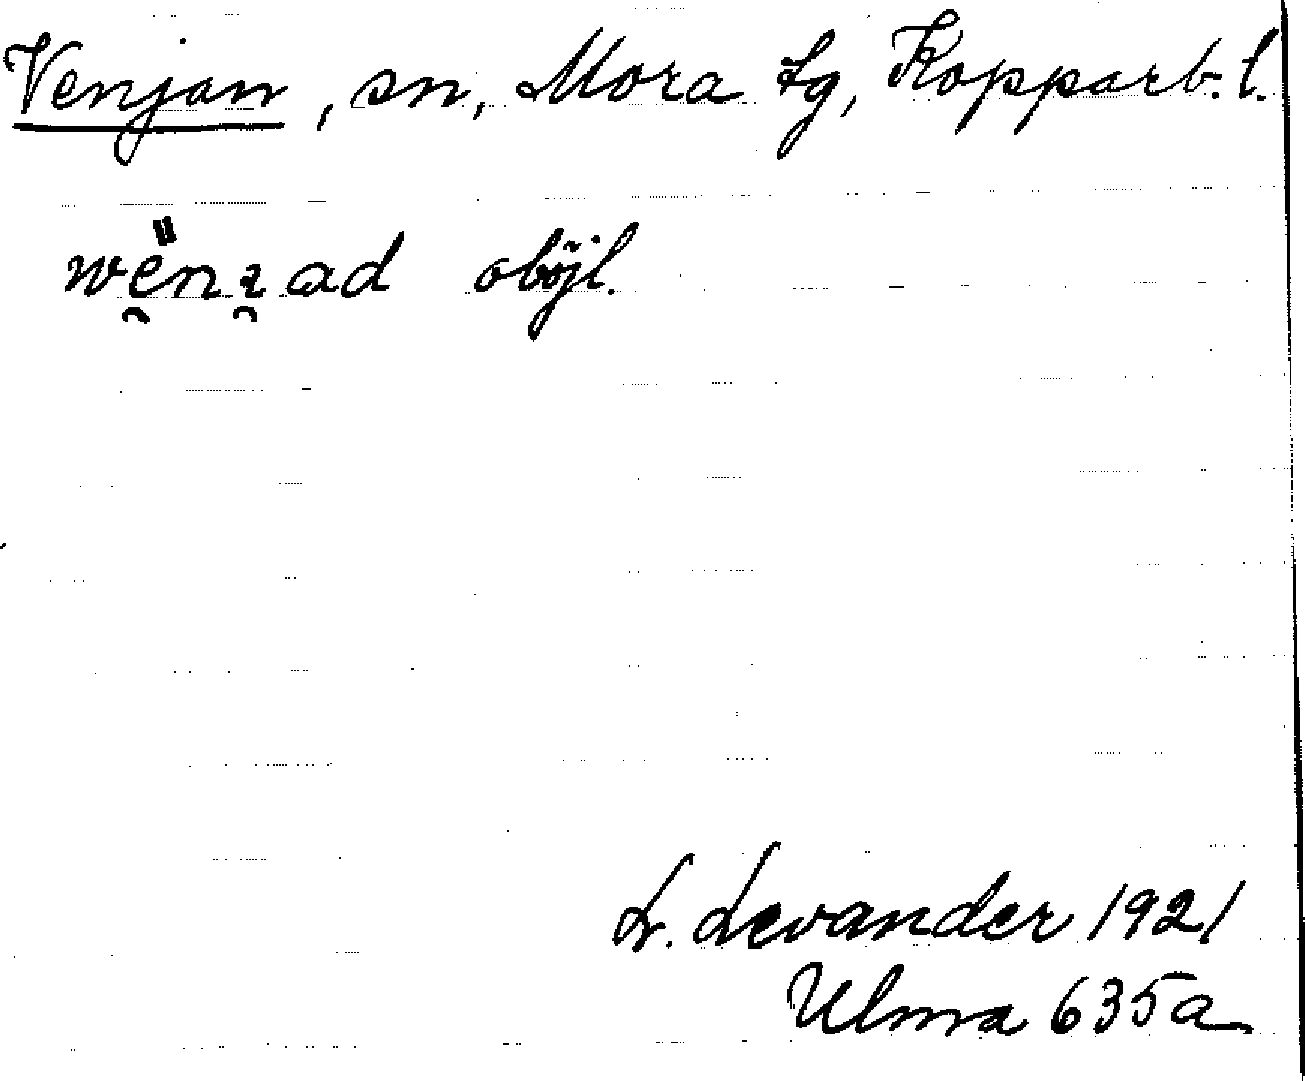 Venjan, sn, Mora tg, Kopparb. l.
oböjl.
L. Levander 1921
Ulma 635a